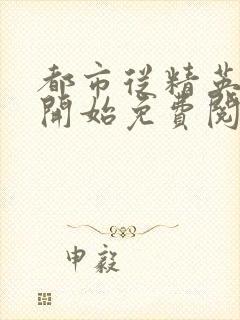 都市從精英
開始免費閱
申毅